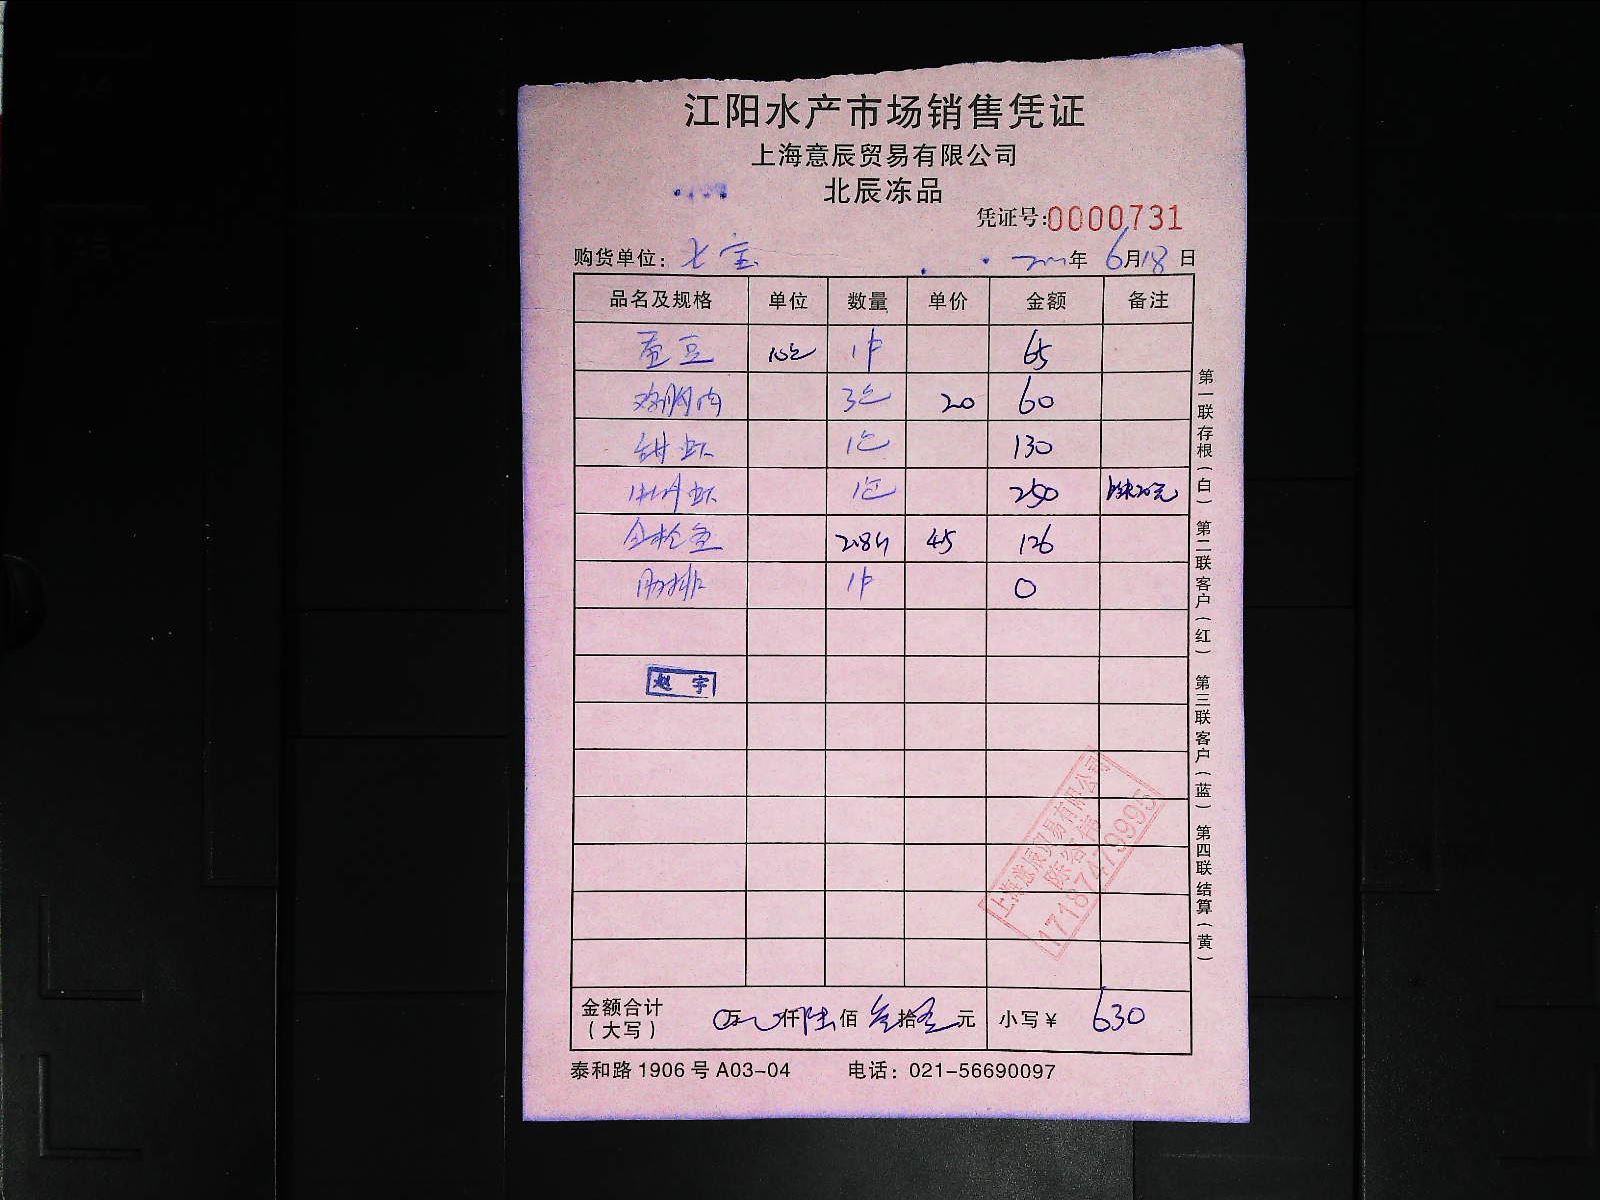 江阳水产市场销售凭证
上海意辰贸易有限公司
北辰冻品
凭证号:0000731
购货单位: 七宝 年 6月18日
品名及规格 单位 数量 单价 金额 备注
蚕豆 10包 1件 65
鸡胸肉 3包 20 60
甜虾 1包 130
虾 1包 250
金枪鱼 2.8斤 45 126
肋排 1件 0
赵宇
上海意辰贸易有限公司
17187479995
金额合计 (大写) 0万 仟陆佰叁拾 元 小写¥ 630
泰和路1906号A03-04 电话: 021-56690097
第一联存根(白) 第二联客户(红) 第三联客户(蓝) 第四联结算(黄)